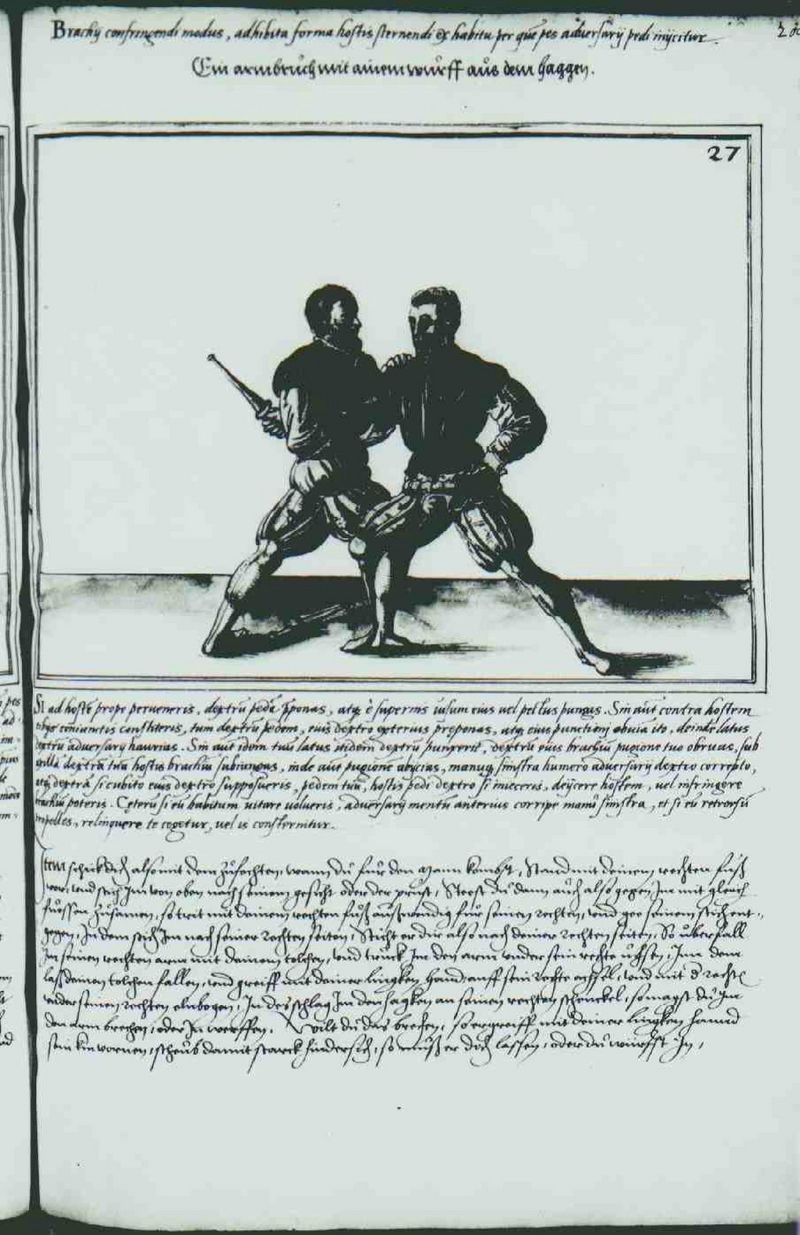 Brachij confringendi modus, adhibita forma hostis sternendi ex habitu per quē pes adversarij pedi inijcitur.
Ein armbruch mit ainem wurff aus dem haggen.
27
Si ad hostē prope perveneris, dextrū pedē pponas, atq è supernis uisum eius uel pectus pungas. Sin aūt contra hostem
coniunctis constiteris, tum dextrū pedem, eius dextro exterius preponas, atq eius punctioni obuiā ito, deinde latus
dextrū adversarij haurias. Sin aūt idem tuū latus itidem dextrū punxerit, dextrū eius brachiū pugione tuo obruas, sub
dextrā tuā hostis brachiū subiungas, inde aūt pugione abijcias, manuq sinistra humero adversarij dextro correpto,
atq dextrā si cubito eius dextro supposueris, pedem tuū, hostis pedi dextro si inieceris, deijcere hostem, uel infringere
brachiū poteris. Ceterū si eū habitum uitare volueris, adversarij mentū anterius corripe manū sinistra, et si eū retrorsū
relinquere te cogetur, uel is consternitur.
Item schick dich also mit dem zufechten, wann du für den Mann kombst, Stand mit deinem rechten fuß
vor, und stich Im von oben nach seinem gesicht oder der prust, Steest du dann auch also gegen Im mit gleich
füssen zusamen, so trit mit deinem rechten fuß außwendig für seinen rechten, und gee seinem stich ent-
gegen, In dem stich Im nach seiner rechten seiten, Sticht er dir also nach deiner rechten seiten, So überfall
Im seinen rechten arm mit deinem tolchen, und truck Im den arm under sein rechte uchsen, Inn dem
laß deinen tolchen fallen, und greiff mit deiner lingken hand auff sein rechte achsl, und mit d' rechtē
under seinen rechten elnbogen, In des schlag Im den haggen an seinen rechten schenckel, so magst du Im
den arm brechen, oder In werffen. Wilt du das brechen, so ergreiff mit deiner lingken hannd
sein kin vornen, scheub damit starck hindersich, so muß er dich lassen, oder du würffst In,